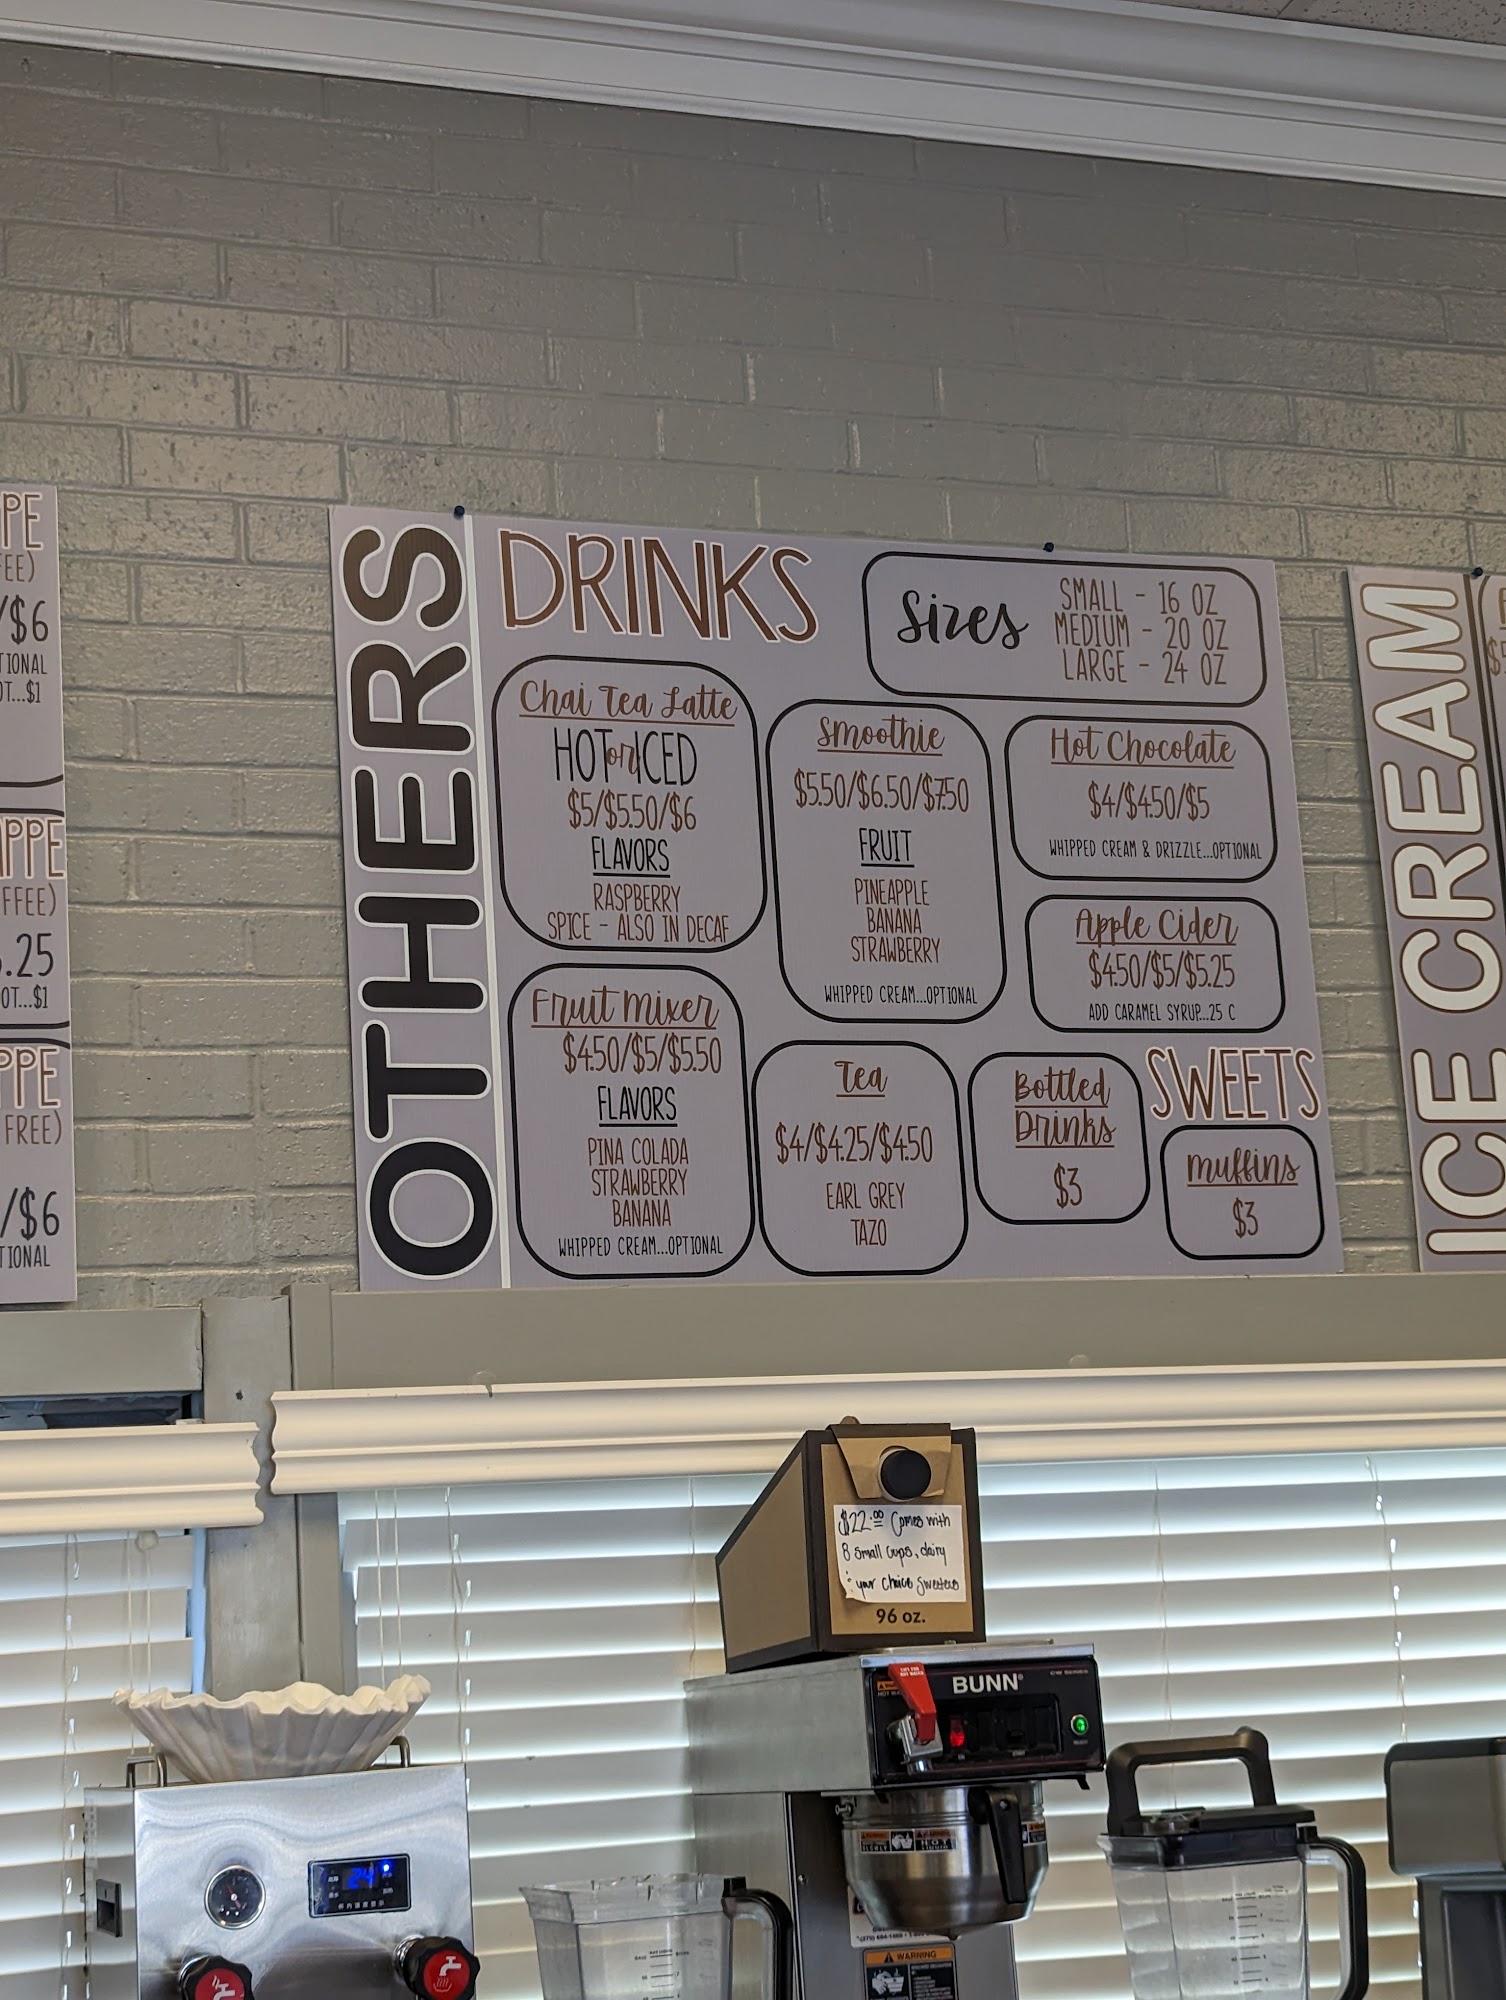 PE
FEE)
/$6
TIONAL
OT...$1
APPE
FFEE)
.25
OT...$1
PPE
FREE)
/$6
TIONAL
OTHERS
DRINKS
Sizes
SMALL - 16 OZ
MEDIUM - 20 OZ
LARGE - 24 OZ
Chai Tea Latte
HOT or ICED
$5/$5.50/$6
FLAVORS
RASPBERRY
SPICE - ALSO IN DECAF
Smoothie
$5.50/$6.50/$7.50
FRUIT
PINEAPPLE
BANANA
STRAWBERRY
WHIPPED CREAM...OPTIONAL
Hot Chocolate
$4/$4.50/$5
WHIPPED CREAM & DRIZZLE...OPTIONAL
Apple Cider
$4.50/$5/$5.25
ADD CARAMEL SYRUP...25 C
Fruit Mixer
$4.50/$5/$5.50
FLAVORS
PINA COLADA
STRAWBERRY
BANANA
WHIPPED CREAM...OPTIONAL
Tea
$4/$4.25/$4.50
EARL GREY
TAZO
Bottled
Drinks
$3
SWEETS
Muffins
$3
ICE CREAM
$22.00 Comes with
8 small cups, dairy
your choice
96 oz.
BUNN
24
WARNING